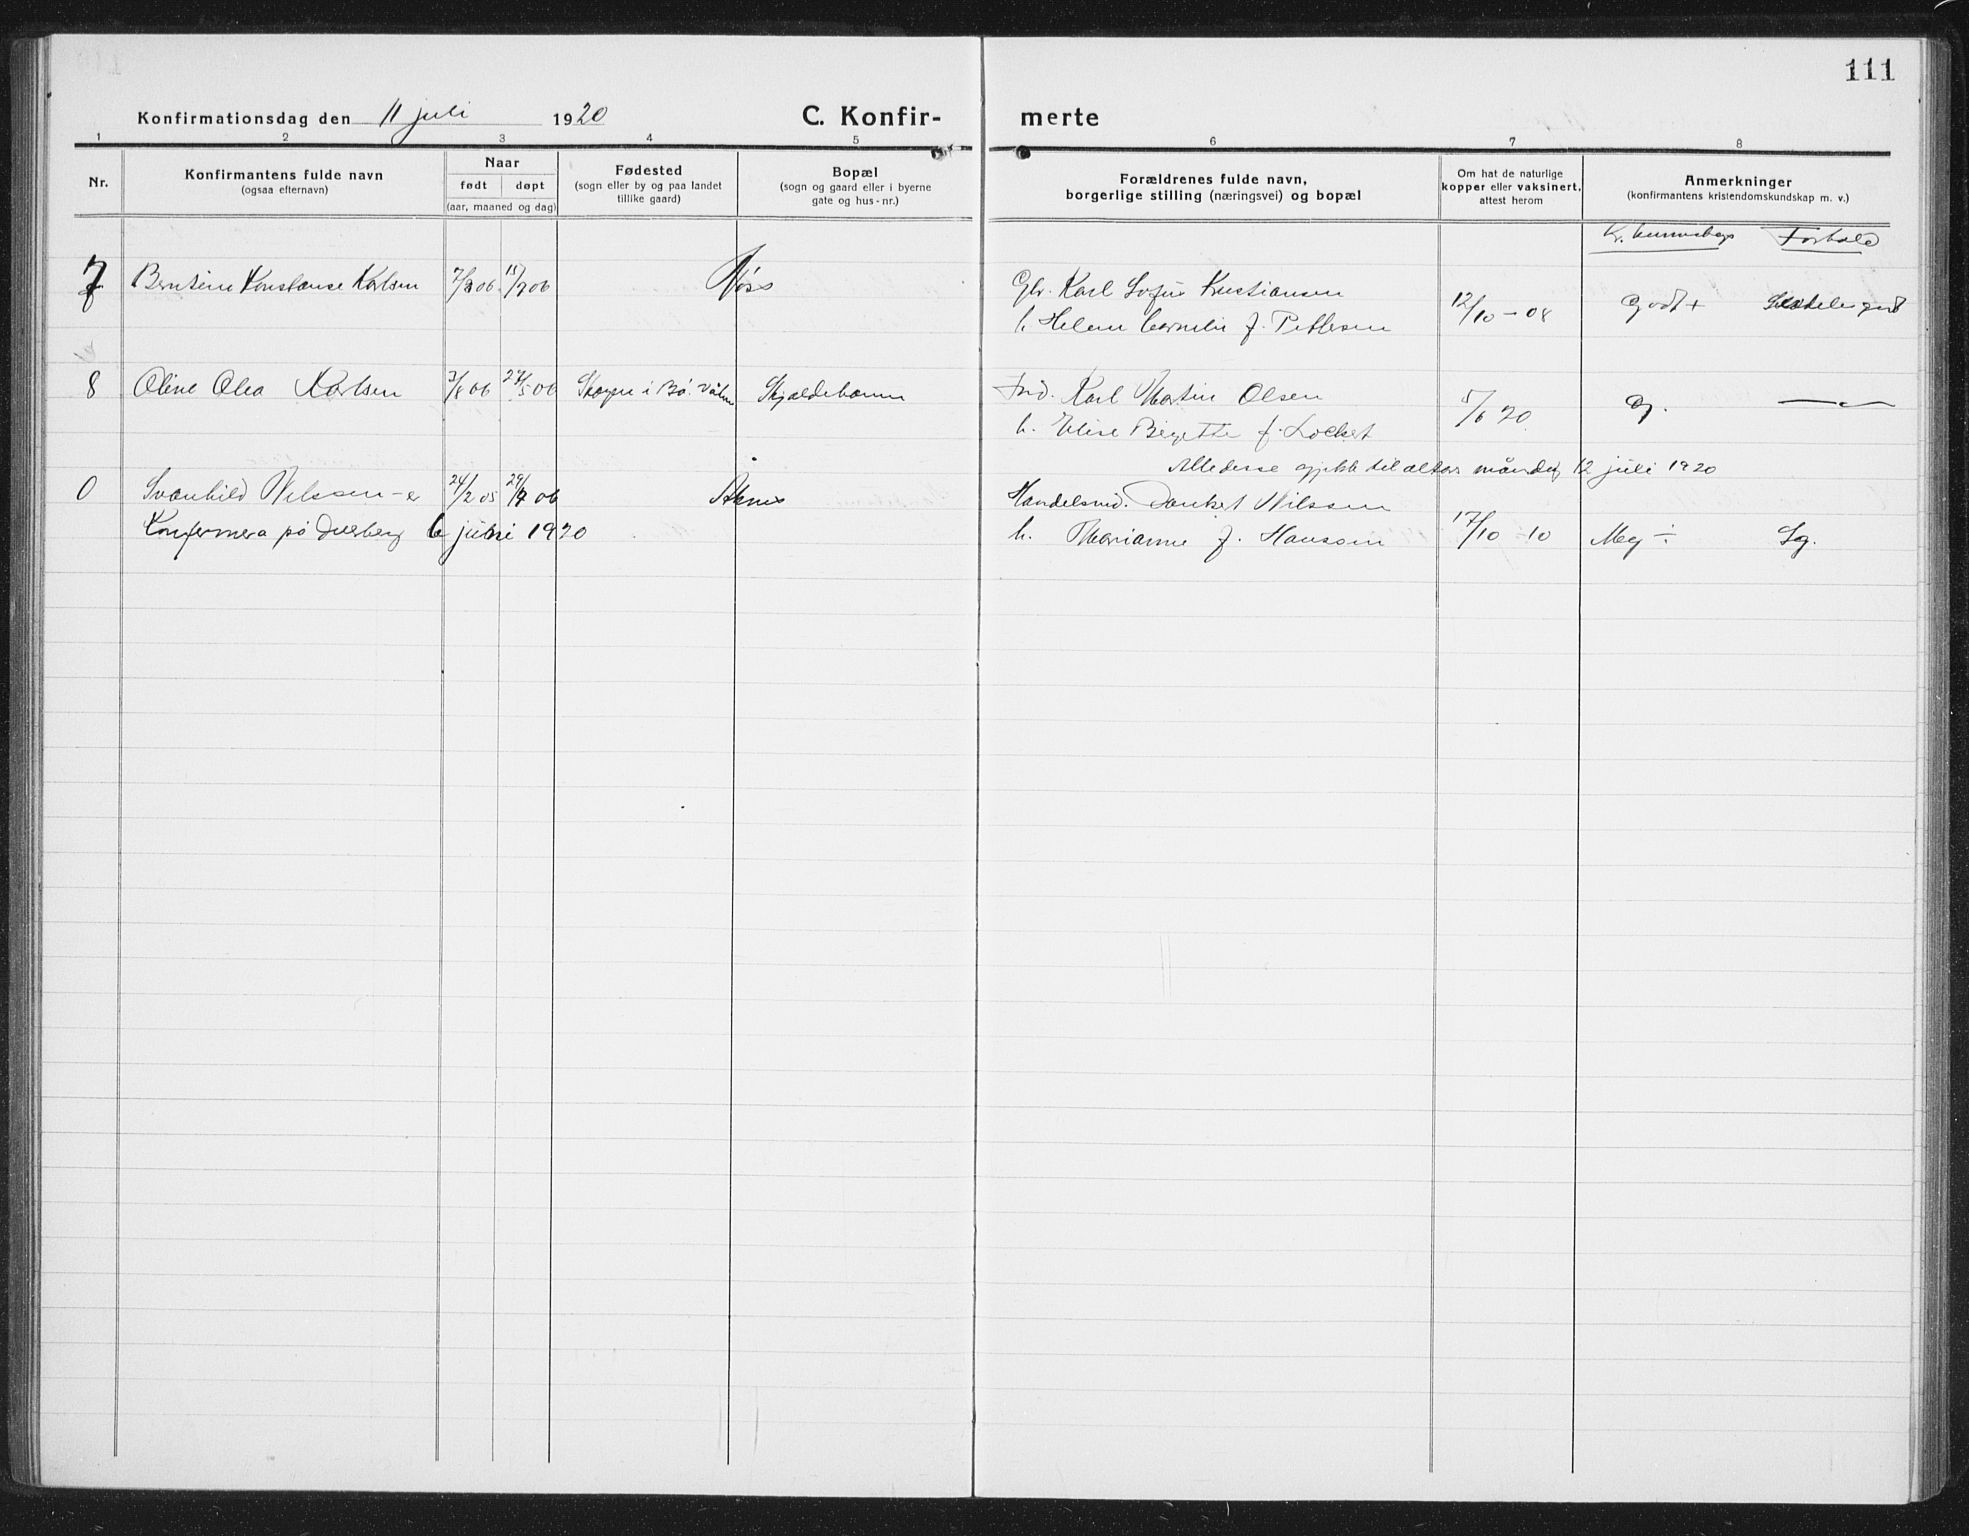 111
Konfirmationsdag den 11 juli 1920
C. Konfir-
merte
1 2 3 4 5 6 7 8
Nr.
Konfirmantens fulde navn
(ogsaa efternavn)
Naar
født døpt
(aar, maaned og dag)
Fødested
(sogn eller by og paa landet
tillike gaard)
Bopæl
(sogn og gaard eller i byerne
gate og hus-nr.)
Forældrenes fulde navn,
borgerlige stilling (næringsvei) og bopæl
Om hat de naturlige
kopper eller vaksinert,
attest herom
Anmerkninger
(konfirmantens kristendomskundskap m. v.)
Forhold
7 Bentine Konstanse Karlsen 06 15/7 06 Gbr. Karl Sofus Kristiansen
h. Helene Cornelie f. Pettersen 12/10 - 08 Godt +
8 Oline Olea Karlsen 3/8 06 06 i Bø Skjoldehamn Karl Martin Olsen
h. Elise f. Lockert 5/6 20 g.
Alle disse gjekk til alters måndag 12 juli 1920
0 Svanhild Nilssen 24/2 05 06 Åknes Handelsmd. Nilssen
Konfermera på 6 juni 1920 h. Marianne f. Hanssen 17/10 10 Mg ÷ Sg.